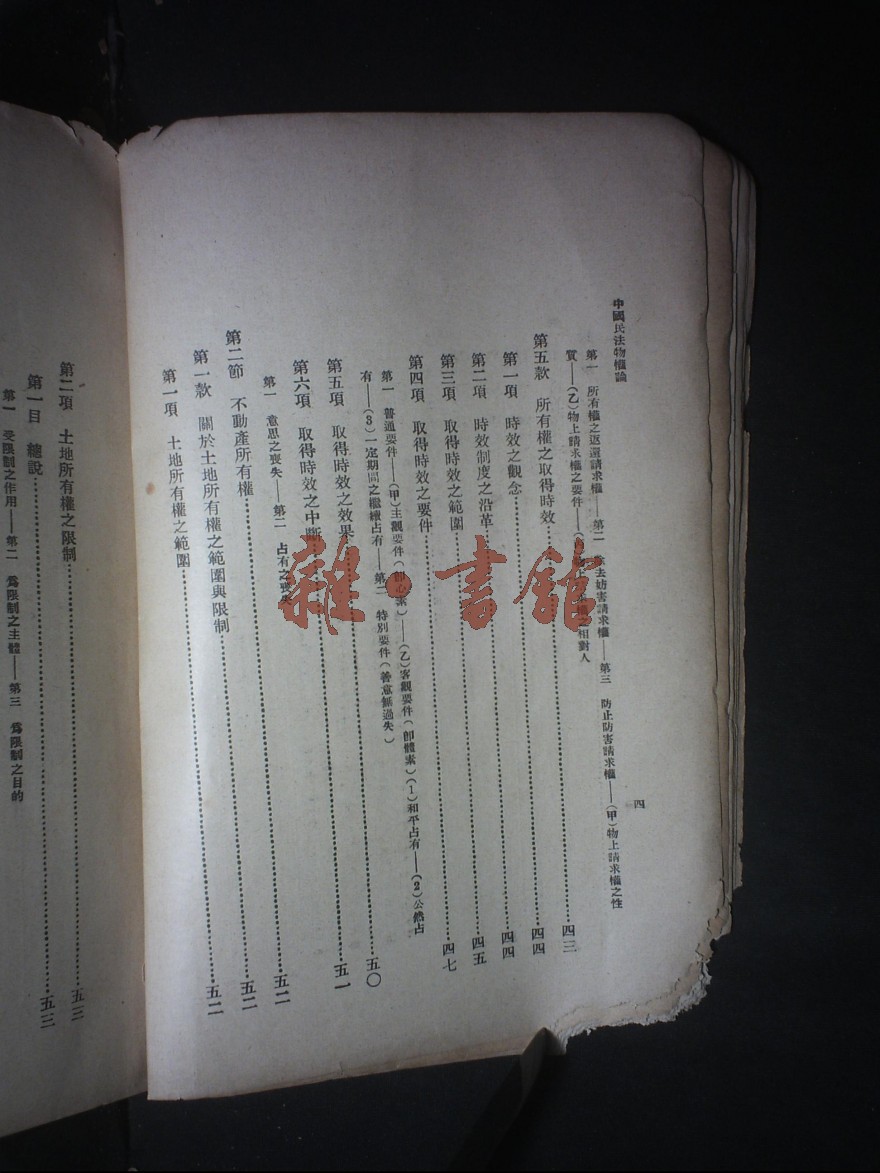 中國民法物權論
四
第一　所有權之返還請求權——第二　除去妨害請求權——第三　防止防害請求權——(甲)物上請求權之性
質——(乙)物上請求權之要件——(丙)物上請求權之相對人 四三
第五款　所有權之取得時效 四四
第一項　時效之觀念 四四
第二項　時效制度之沿革 四五
第三項　取得時效之範圍 四七
第四項　取得時效之要件
第一　普通要件——(甲)主觀要件(卽心素)——(乙)客觀要件(卽體素)(1)和平占有——(2)公然占
有——(3)一定期間之繼續占有——第二　特別要件(善意無過失) 五〇
第五項　取得時效之效果 五一
第六項　取得時效之中斷
第一　意思之喪失——第二　占有之喪失 五二
第二節　不動產所有權 五二
第一款　關於土地所有權之範圍與限制
第一項　土地所有權之範圍 五二
第二項　土地所有權之限制 五三
第一目　總說 五三
第一　受限制之作用——第二　爲限制之主體——第三　爲限制之目的
雜·書館